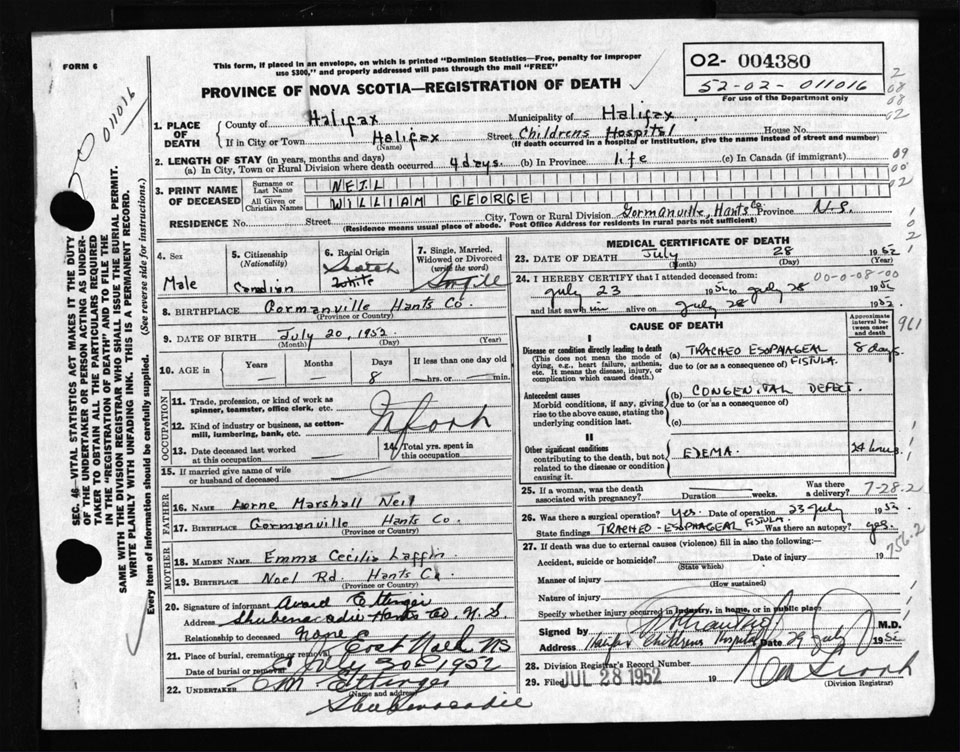 FORM 6
This form, if placed in an envelope, on which is printed "Dominion Statistics—Free, penalty for improper
use $300," and properly addressed will pass through the mail "FREE"
PROVINCE OF NOVA SCOTIA—REGISTRATION OF DEATH
02- 004380
52-02-011016
For use of the Department only
011016
1. PLACE OF DEATH
County of Halifax Municipality of Halifax
If in City or Town Halifax Street Childrens Hospital House No.
(Name) (If death occurred in a hospital or institution, give the name instead of street and number)
2. LENGTH OF STAY (in years, months and days)
(a) In City, Town or Rural Division where death occurred 4 days. (b) In Province life (c) In Canada (if immigrant)
3. PRINT NAME OF DECEASED
Surname or Last Name NEIL
All Given or Christian Names WILLIAM GEORGE
RESIDENCE No. Street City, Town or Rural Division Gormanville, Hants Co Province N.S.
(Residence means usual place of abode. Post Office Address for residents in rural parts not sufficient)
4. Sex Male
5. Citizenship (Nationality) Canadian
6. Racial Origin Scotch White
7. Single, Married, Widowed or Divorced (write the word) Single
8. BIRTHPLACE Gormanville Hants Co.
(Province or Country)
9. DATE OF BIRTH July 20, 1952
(Month) (Day) (Year)
10. AGE in Years — Months — Days 8 If less than one day old —hrs. or —min.
OCCUPATION
11. Trade, profession, or kind of work as
spinner, teamster, office clerk, etc.
12. Kind of industry or business, as cotton-
mill, lumbering, bank, etc.
13. Date deceased last worked
at this occupation
14. Total yrs. spent in
this occupation
15. If married give name of wife
or husband of deceased
FATHER
16. NAME Lorne Marshall Neil
17. BIRTHPLACE Gormanville Hants Co.
(Province or Country)
MOTHER
18. MAIDEN NAME Emma Cecilia Laffin
19. BIRTHPLACE Noel Rd. Hants Co.
(Province or Country)
20. Signature of informant Avard Ettinger
Address Shubenacadie Hants Co. N.S.
Relationship to deceased None
21. Place of burial, cremation or removal East Noel NS
Date of burial or removal July 30 1952
22. UNDERTAKER Ettinger
(Name and address)
Shubenacadie
MEDICAL CERTIFICATE OF DEATH
23. DATE OF DEATH July 28 1952
(Month) (Day) (Year)
24. I HEREBY CERTIFY that I attended deceased from: 00-0-08-00
July 23 1952 to July 28 1952
and last saw h im alive on July 28 1952.
CAUSE OF DEATH
Approximate interval between onset and death
961
I
Disease or condition directly leading to death
(This does not mean the mode of
dying, e.g., heart failure, asthenia,
etc. It means the disease, injury, or
complication which caused death.)
(a) TRACHEO ESOPHAGEAL FISTULA. 8 days.
due to (or as a consequence of)
Antecedent causes
Morbid conditions, if any, giving
rise to the above cause, stating the
underlying condition last.
(b) CONGENITAL DEFECT.
due to (or as a consequence of)
(c)
II
Other significant conditions
contributing to the death, but not
related to the disease or condition
causing it.
EDEMA. 24 hours.
25. If a woman, was the death
associated with pregnancy? Duration weeks. Was there a delivery? 7-28-2
26. Was there a surgical operation? yes. Date of operation 23 July 1952
State findings TRACHEO-ESOPHAGEAL FISTULA. Was there an autopsy? yes.
756.2
27. If death was due to external causes (violence) fill in also the following:—
Accident, suicide or homicide? Date of injury 19
(State which)
Manner of injury
(How sustained)
Nature of injury
Specify whether injury occurred in industry, in home, or in public place
Signed by M.D.
Address Halifax Childrens Hospital Date 29 July 1952
28. Division Registrar's Record Number
29. Filed JUL 28 1952 19
(Division Registrar)
SEC. 46—VITAL STATISTICS ACT MAKES IT THE DUTY
OF THE UNDERTAKER OR PERSON ACTING AS UNDER-
TAKER TO OBTAIN ALL THE PARTICULARS REQUIRED
IN THE "REGISTRATION OF DEATH" AND TO FILE THE
SAME WITH THE DIVISION REGISTRAR WHO SHALL ISSUE THE BURIAL PERMIT.
WRITE PLAINLY WITH UNFADING INK. THIS IS A PERMANENT RECORD.
Every item of information should be carefully supplied. (See reverse side for instructions.)